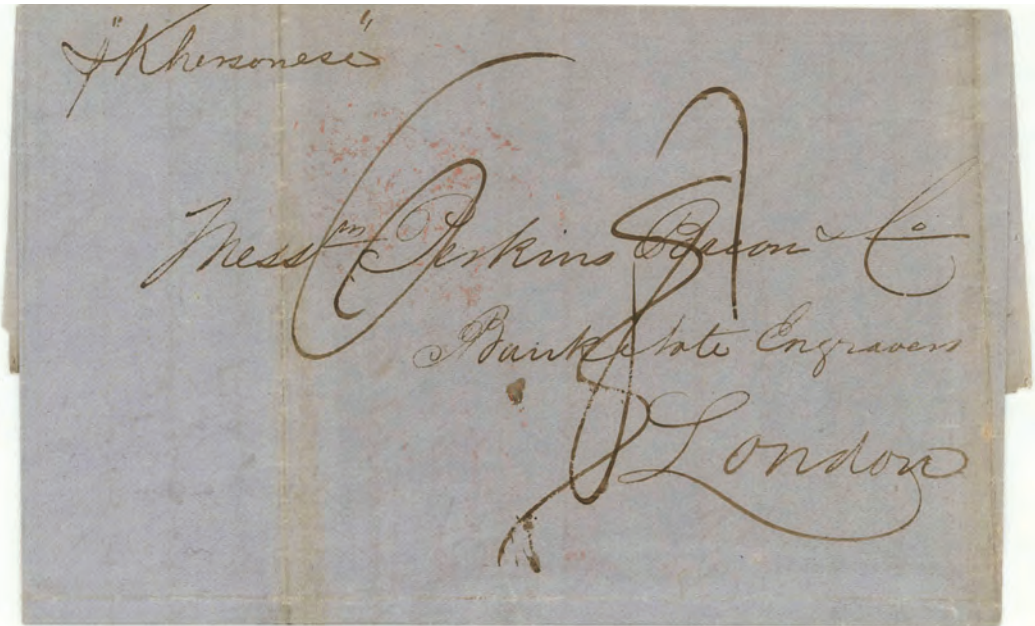 p "Khersonese"
Messrs Perkins Bacon & Co
Bank Note Engravers
London